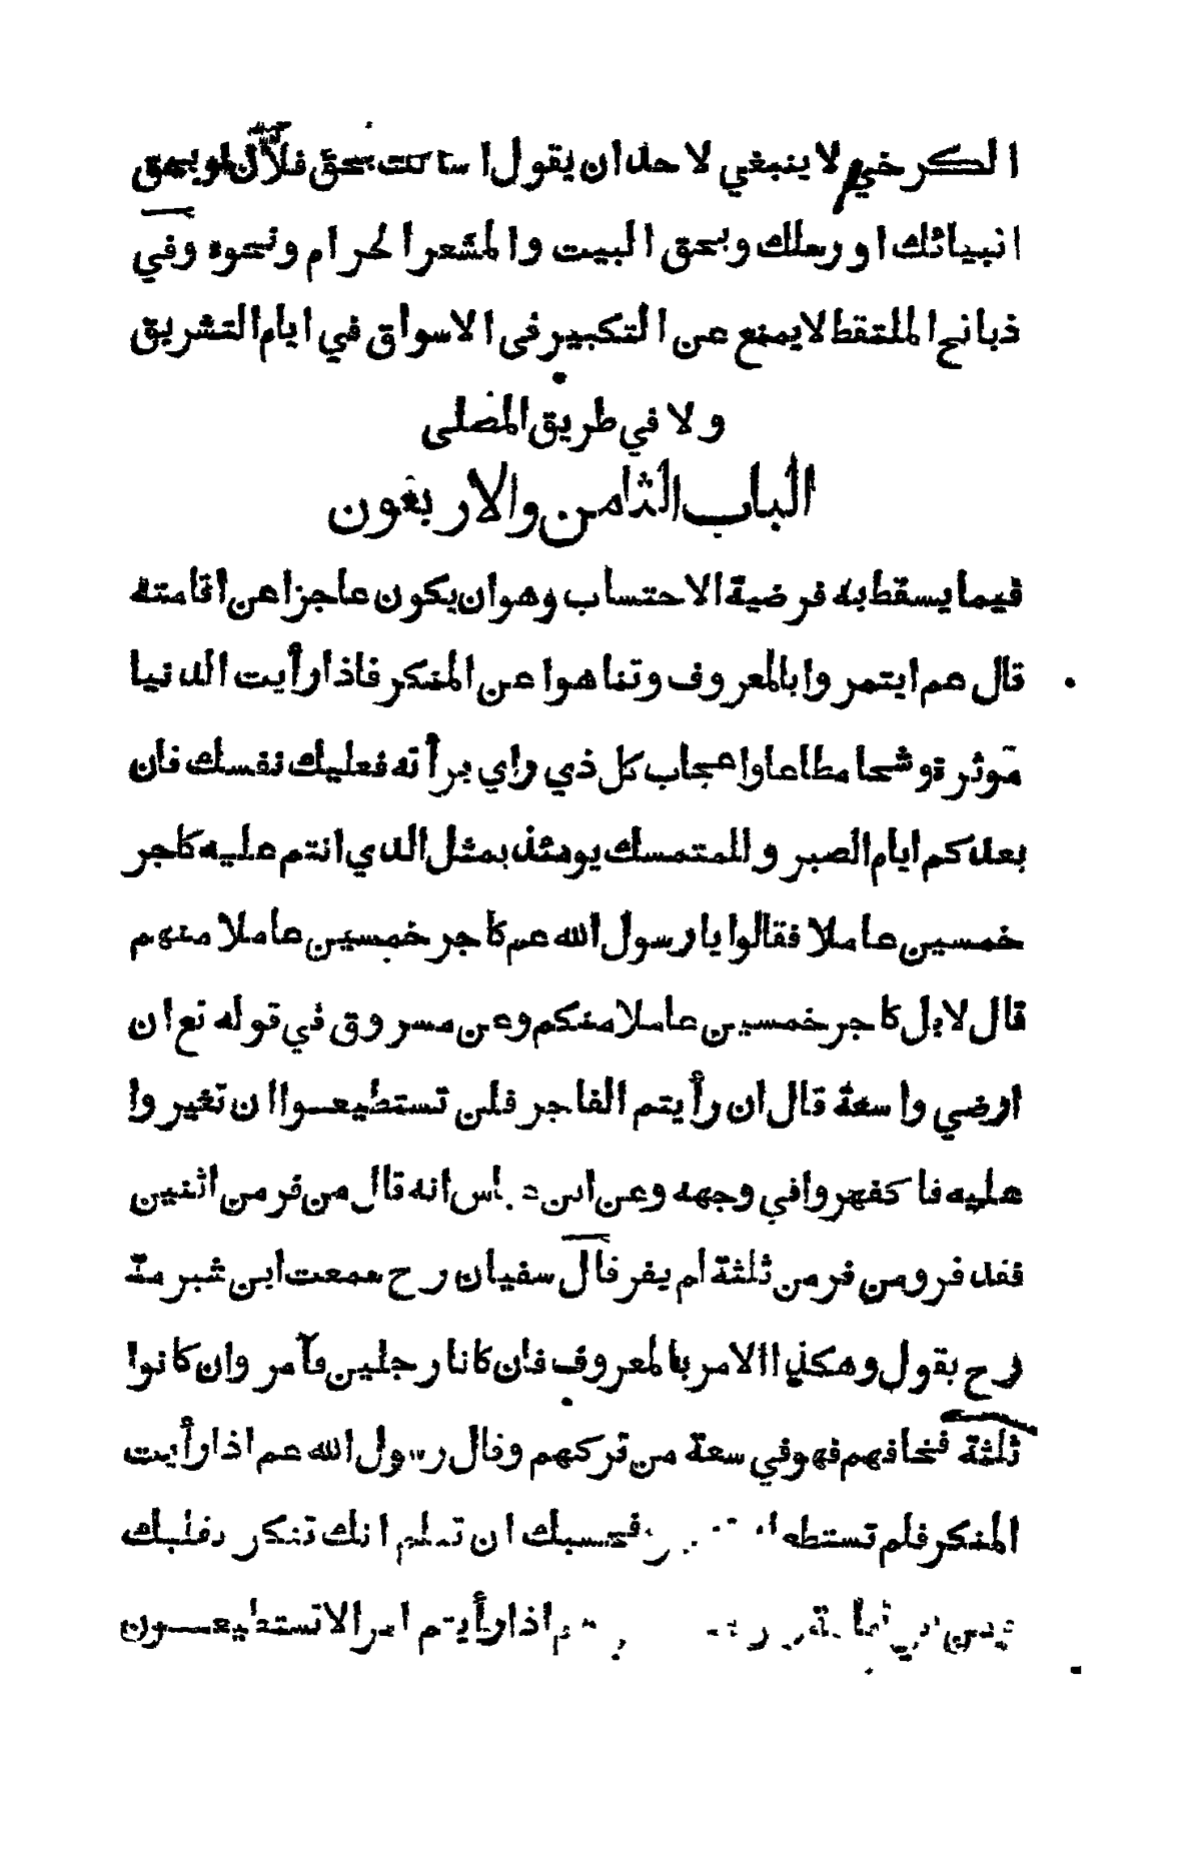 الكرخي لا ينبغي لاحد ان يقول اسالك بحق فلان او بحق
انبيائك او رسلك وبحق البيت والمشعر الحرام ونحوه وفي
ذبائح الملتقط لا يمنع عن التكبير فى الاسواق في ايام التشريق
ولا في طريق المضلى
الباب الثامن والاربعون
فيما يسقط به فرضية الاحتساب وهو ان يكون عاجزا عن اقامته
قال عم ايتمروا بالمعروف وتناهوا عن المنكر فاذا رأيت الدنيا
موثرة وشحا مطاعا واعجاب كل ذي راي برأته فعليك نفسك فان
بعدكم ايام الصبر وللمتمسك يومئذ بمثل الذي انتم عليه كاجر
خمسين عاملا فقالوا يا رسول الله عم كاجر خمسين عاملا منهم
قال لا بل كاجر خمسين عاملا منكم وعن مسروق في قوله تع ان
ارضي واسعة قال ان رأيتم الفاجر فلن تستطيعوا ان تغيروا
عليه فاكفهروا في وجهه وعن ابن عباس انه قال من فر من اثنين
فقد فر ومن فر من ثلثة لم يفر قال سفيان رح سمعت ابن شبرمة
رح بقول وهكذا الامر بالمعروف فان كانا رجلين فآمر وان كانوا
ثلثة فخافهم فهو في سعة من تركهم وقال رسول الله عم اذا رأيت
المنكر فلم تستطع فحسبك ان تعلم انك تنكر بقلبك
اذا رأيتم امرا لا تستطيعون